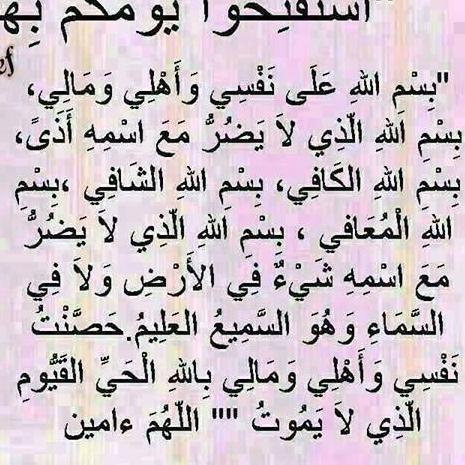 "استفتحوا يومكم بِه
"بِسْمِ اللهِ عَلَى نَفْسِي وَأَهْلِي وَمَالِي،
بِسْمِ اللهِ الَّذِي لاَ يَضُرُّ مَعَ اسْمِهِ أَذَىً،
بِسْمِ اللهِ الكَافِي، بِسْمِ اللهِ الشَافِي ،بِسْمِ
اللهِ الْمُعَافي ، بِسْمِ اللهِ الَّذِي لاَ يَضُرُّ
مَعَ اسْمِهِ شَيْءٌ فِي الأَرْضِ وَلاَ فِي
السَّمَاءِ وَهُوَ السَّمِيعُ العَلِيمُ.حَصَّنْتُ
نَفْسِي وَأَهْلِي وَمَالِي بِاللهِ الْحَيِّ القَيُّومِ
الَّذِي لاَ يَمُوتُ "" اللّهُمَ ءامين